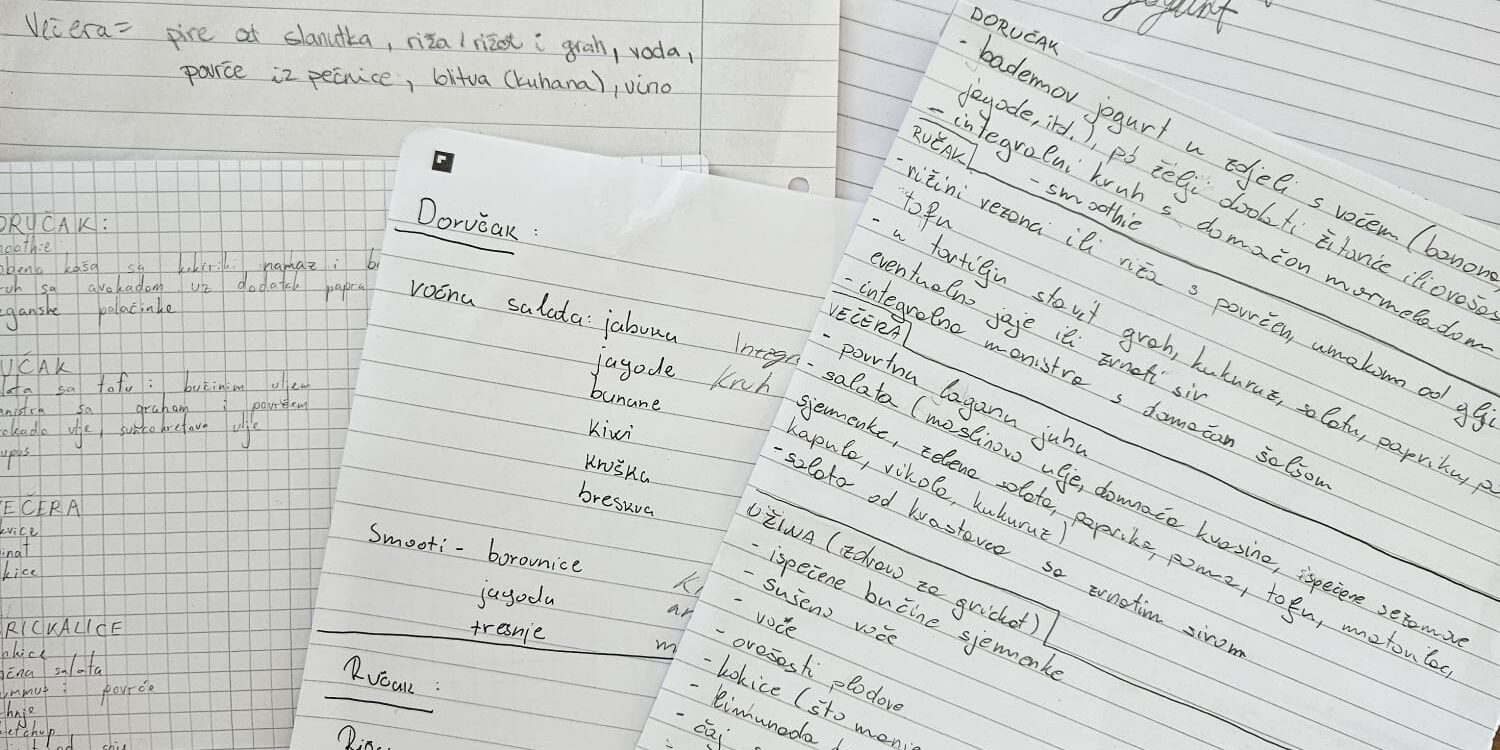 Večera= pire od slanutka, riža/rižot i grah, voda,
povrće iz pećnice, blitva (kuhana), vino
jogurt
DORUČAK:
kaša sa kikiriki, namaz i
sa avokadom uz dodatak
palačinke
sa tofu i bučinim uljem
sa grahom i povrćem
ulje, suncokretovo ulje
salata
povrće
Doručak:
voćna salata: jabuka
jagode
banane
kiwi
kruška
breskva
Kruh
Smooti - borovnice
jagoda
tresnje
Ručak:
DORUČAK
- bademov jogurt u zdjeli s voćem (banana,
jagode, itd.), po želji dodati žitarice ili
- integralni kruh s domaćom marmeladom
- smoothie
RUČAK
- rižini rezanci ili riža s povrćem, umakom od
tofu
- u tortilju stavit grah, kukuruz, salatu, papriku,
eventualno jaje ili zrnati sir
- integralna maništra s domaćom šalšom
VEČERA
- povrtnu laganu juhu
- salata (maslinovo ulje, domaća kvasina, ispečene sezamove
sjemenke, zelena salata, paprika, poma, tofu, matovilac,
kapula, rikola, kukuruz)
- salata od krastavca sa zrnatim sirom
UŽINA (zdravo za grickat)
- ispečene bučine sjemenke
- sušeno voće
- voće
- orašasti plodove
- kokice (što manje
- limunada
- čaj